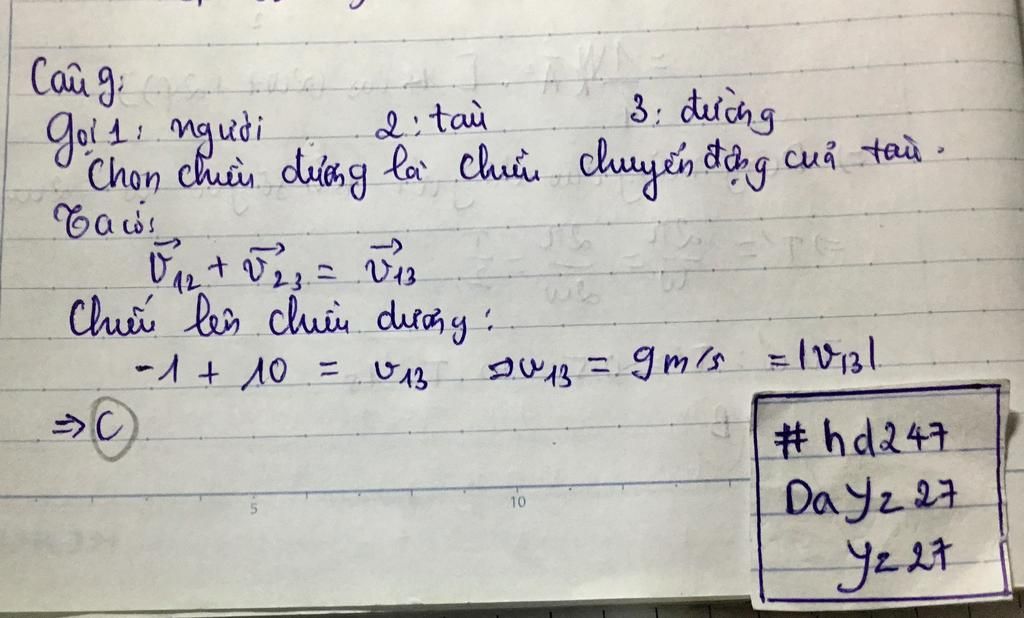 Câu 9:
Gọi 1: người 2: tàu 3: đường
Chọn chiều dương là chiều chuyển động của tàu.
Ta có:
v⃗₁₂ + v⃗₂₃ = v⃗₁₃
Chiếu lên chiều dương:
-1 + 10 = v₁₃ ⇒ v₁₃ = 9 m/s = |v₁₃|
⇒ C
5 10
#hd247
Dayz27
yz27